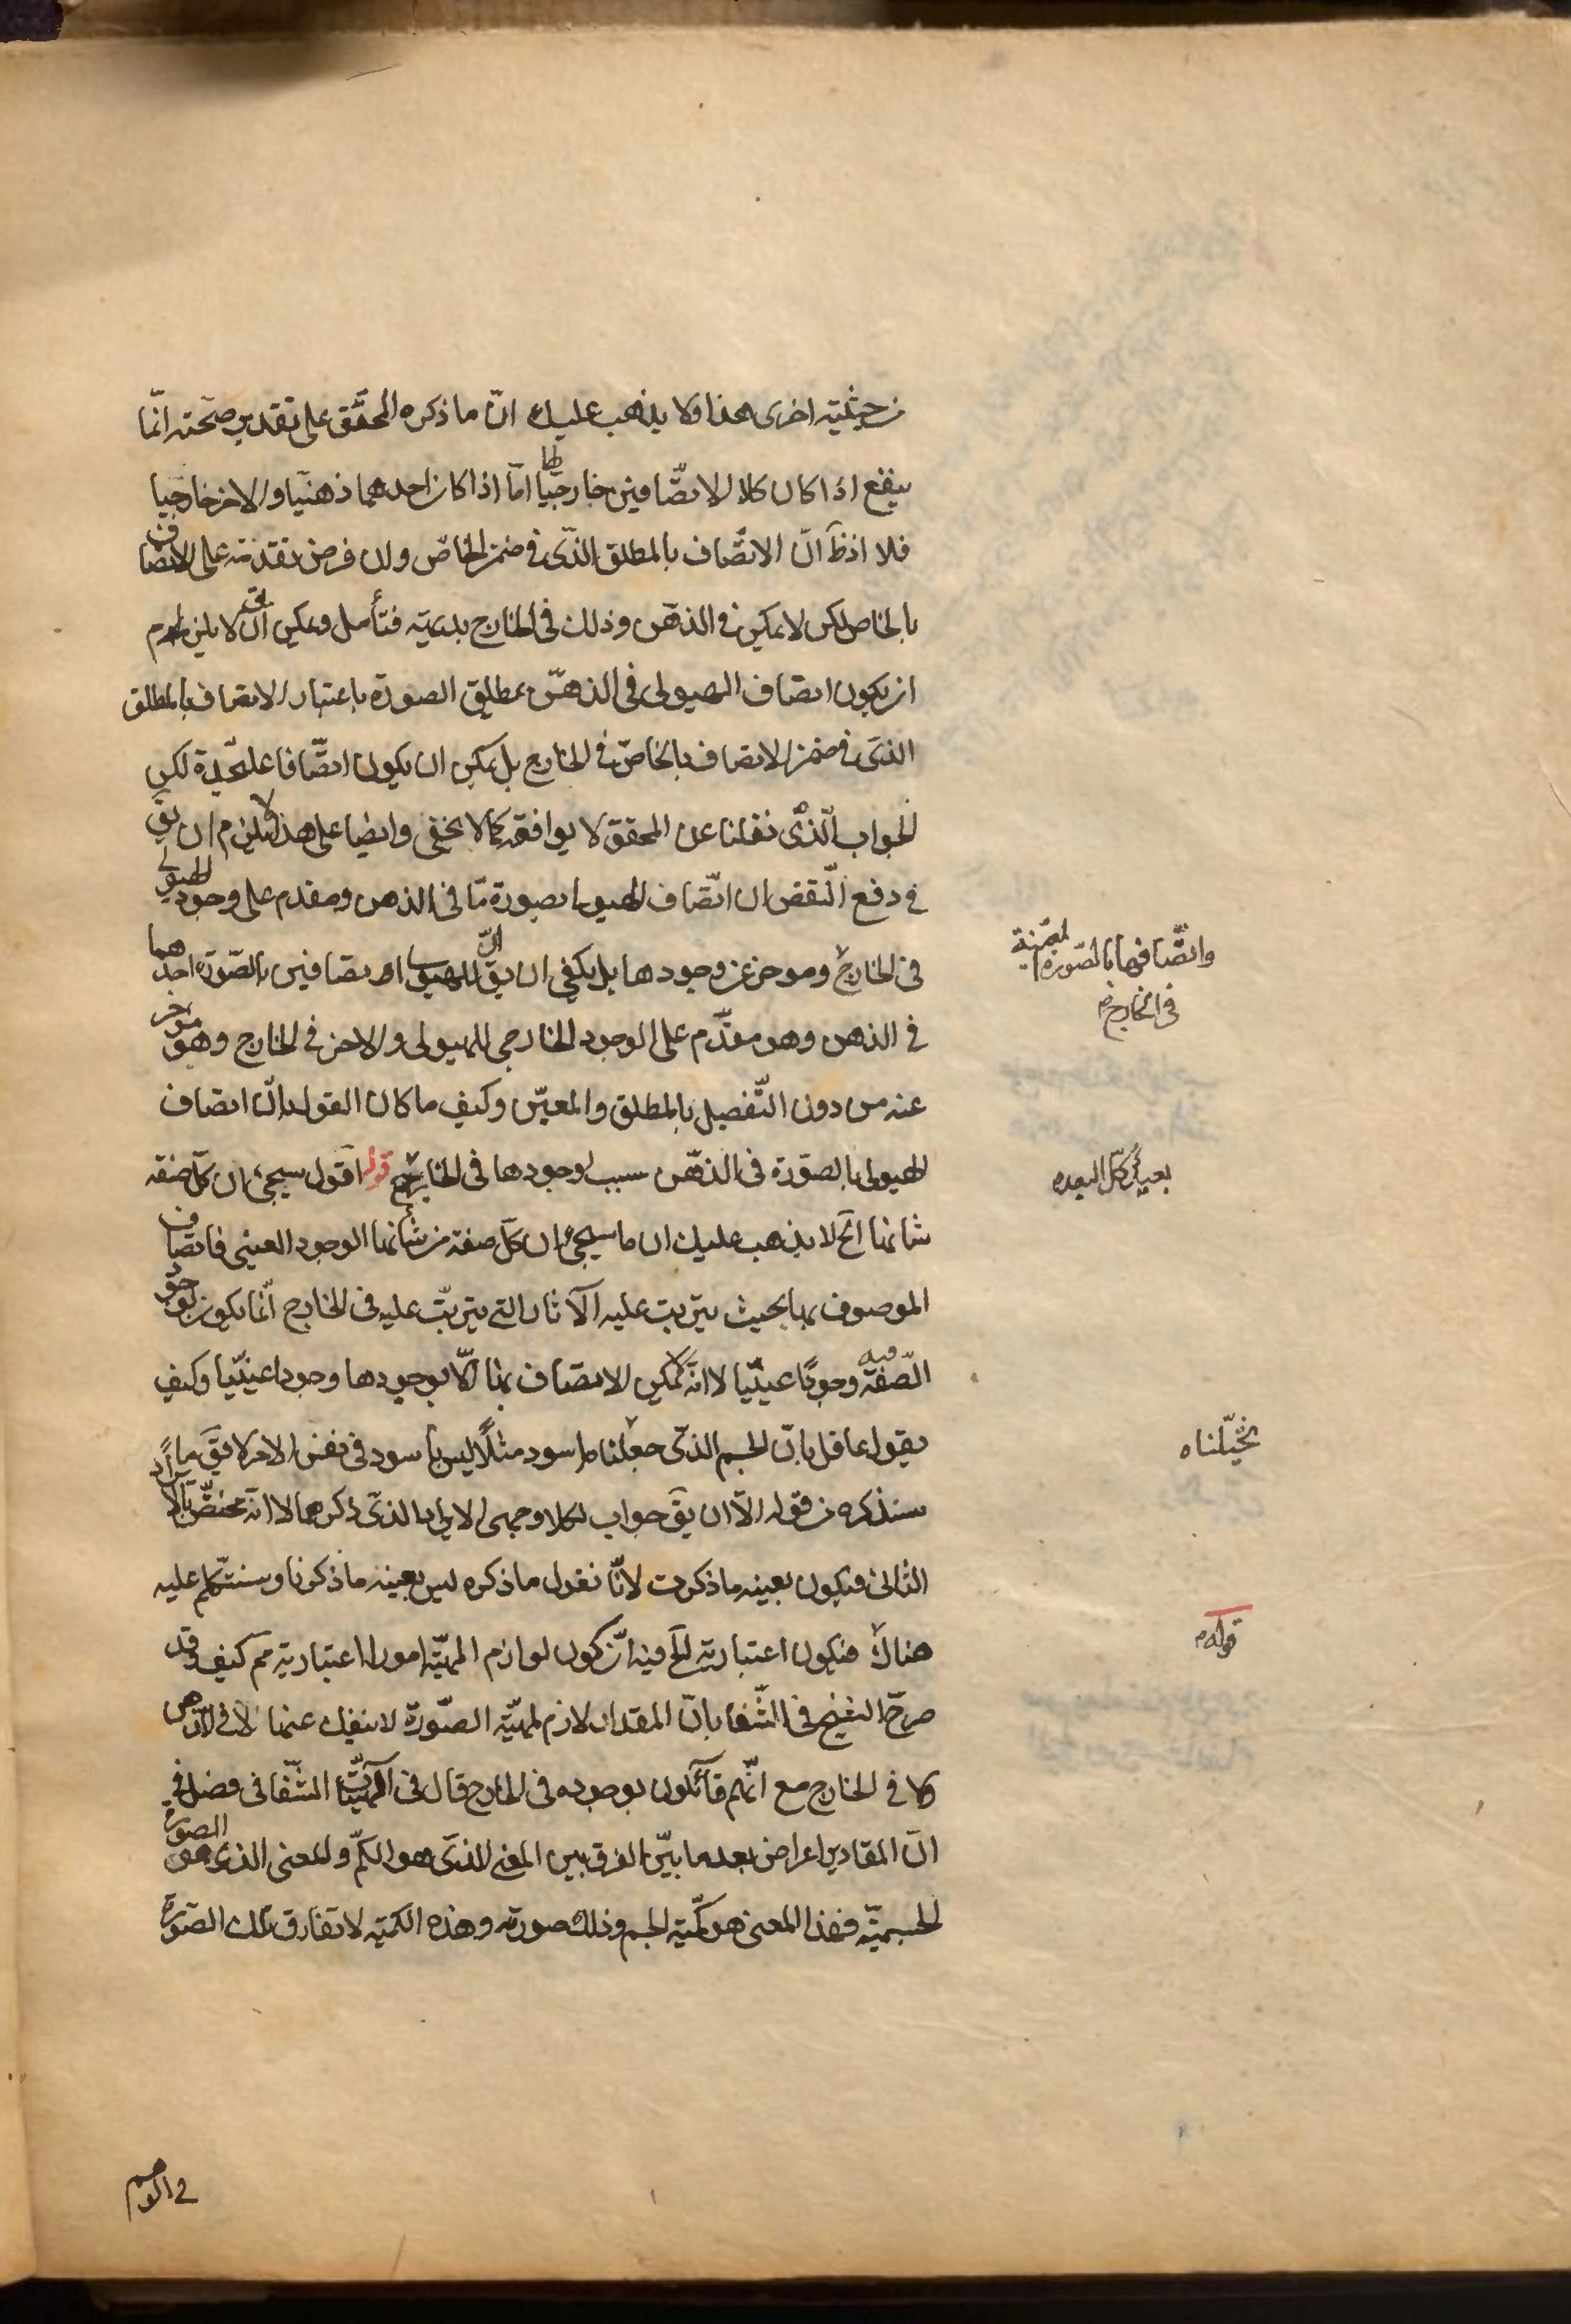 من حيثية اخرى هذا ولا يذهب عليك انّ ما ذكره المحقّق على تقدير صحّته انّما
ينفع اذا كان كلا الاتصّافين خارجيّا امّا اذا كان احدهما ذهنيّا والاخر خارجيا
فلا اذ انّ الاتصّاف بالمطلق الذّى فى ضمن الخاصّ وان فرض تقدمه على الاتصاف
بالخاص لكن لا يمكن فى الذهن وذلك فى الخارج بديهيّة فتأمل ويمكن ان يق لا يلزم
ان يكون اتصاف الهيولى فى الذهن بمطلق الصورة باعتبار الاتصاف بالمطلق
الذى فى ضمن الاتصاف بالخاصّ فى الخارج بل يمكن ان يكون اتصّافا عليحدة لكن
الجواب الّذى نقلنا عن المحقق لا يوافقه كما لا يخفى وايضا على هذا لا يلزم ان يق
فى دفع النّقض ان اتّصاف الهيولى بصورة مّا فى الذهن مقدم على وجود الهيولى
فى الخارج وموخر عن وجودها بل يكفى ان يق انّ للهيولى اتصافين بالصّورة احدهما
فى الذهن وهو مقدّم على الوجود الخارجى للهيولى والاخر فى الخارج وهو مؤخر
عنه من دون التّفصيل بالمطلق والمعيّن وكيف ما كان القول بانّ اتصاف
الهيولى بالصّورة فى الذهن سبب لوجودها فى الخارج قوله اقول سيجئ ان كلّ صفة
شانها الخ لا يذهب عليك ان ما سيجئ ان كلّ صفة من شأنها الوجود العينى فاتصاف
الموصوف بها بحيث يترتب عليه الآثار التى يترتّب عليه فى الخارج انّما يكون بوجود
الصّفة فيه وجودًا عينيّا لا انّه لا يمكن الاتصاف بها الّا بوجودها وجودا عينيّا وكيف
يقول عاقل بانّ الجسم الذّى جعلنا اسود مثلًا ليس باسود فى نفس الامر لا يق ما
سنذكره من قوله الّا ان يق جواب لكلا وجهى الايراد الذى ذكرها لا انّه مختصّ بالايراد
الثانى فيكون بعينه ما ذكرت لانّا نقول ما ذكره ليس بعينه ما ذكرنا وسنتكلّم عليه
هناك فيكون اعتبارية الخ فيه انّ كون لوازم المهيّة امورا اعتبارية مم كيف وقد
صرّح الشيخ فى الشّفا بانّ المقدار لازم لمهيّة الصّورة لا ينفك عنها لا فى الذهن
ولا فى الخارج مع انّهم قائلون بوجوده فى الخارج قال فى الهيّات الشّفا فى فصل فى
انّ المقادير اعراض بعد ما بيّن الفرق بين المعنى الذى هو الكمّ والمعنى الذى هو الصورة
الجسميّة فهذا المعنى هو كمّية الجسم وذلك صورته وهذه الكمّية لا تفارق تلك الصّورة
واتصّافها بالصّورة المعيّنة
فى الخارج
تخيّلناه
قوله
فى الوهم